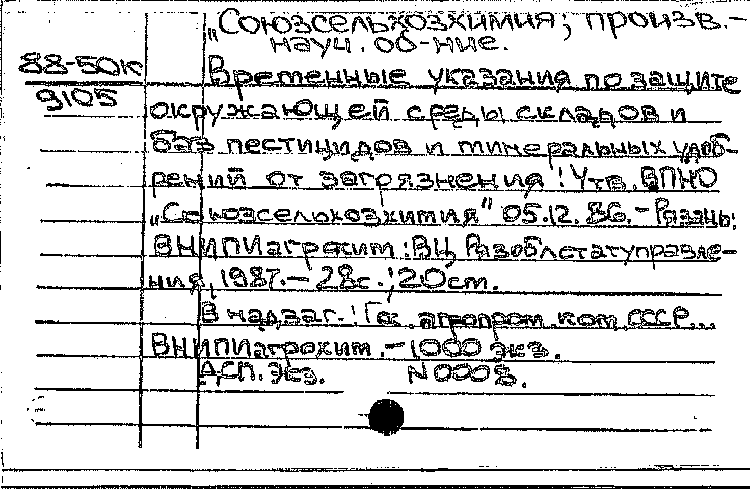 „Союзсельхозхимия", произв.-
науч. об-ние.
88-50к
9105
Временные указания по защите
окружающей среды складов и
баз пестицидов и минеральных удоб-
рений от загрязнения: Утв. ВПНО
„Союзсельхозхимия" 05.12.86.-Рязань:
ВНИПИагрохим: ВЦ Рязоблстатуправле-
ния, 1987.-28с.; 20см.
В надзаг.: Гос. агропром. ком. СССР...
ВНИПИагрохим.-1000 экз.
ДСП. Экз. N 0008.